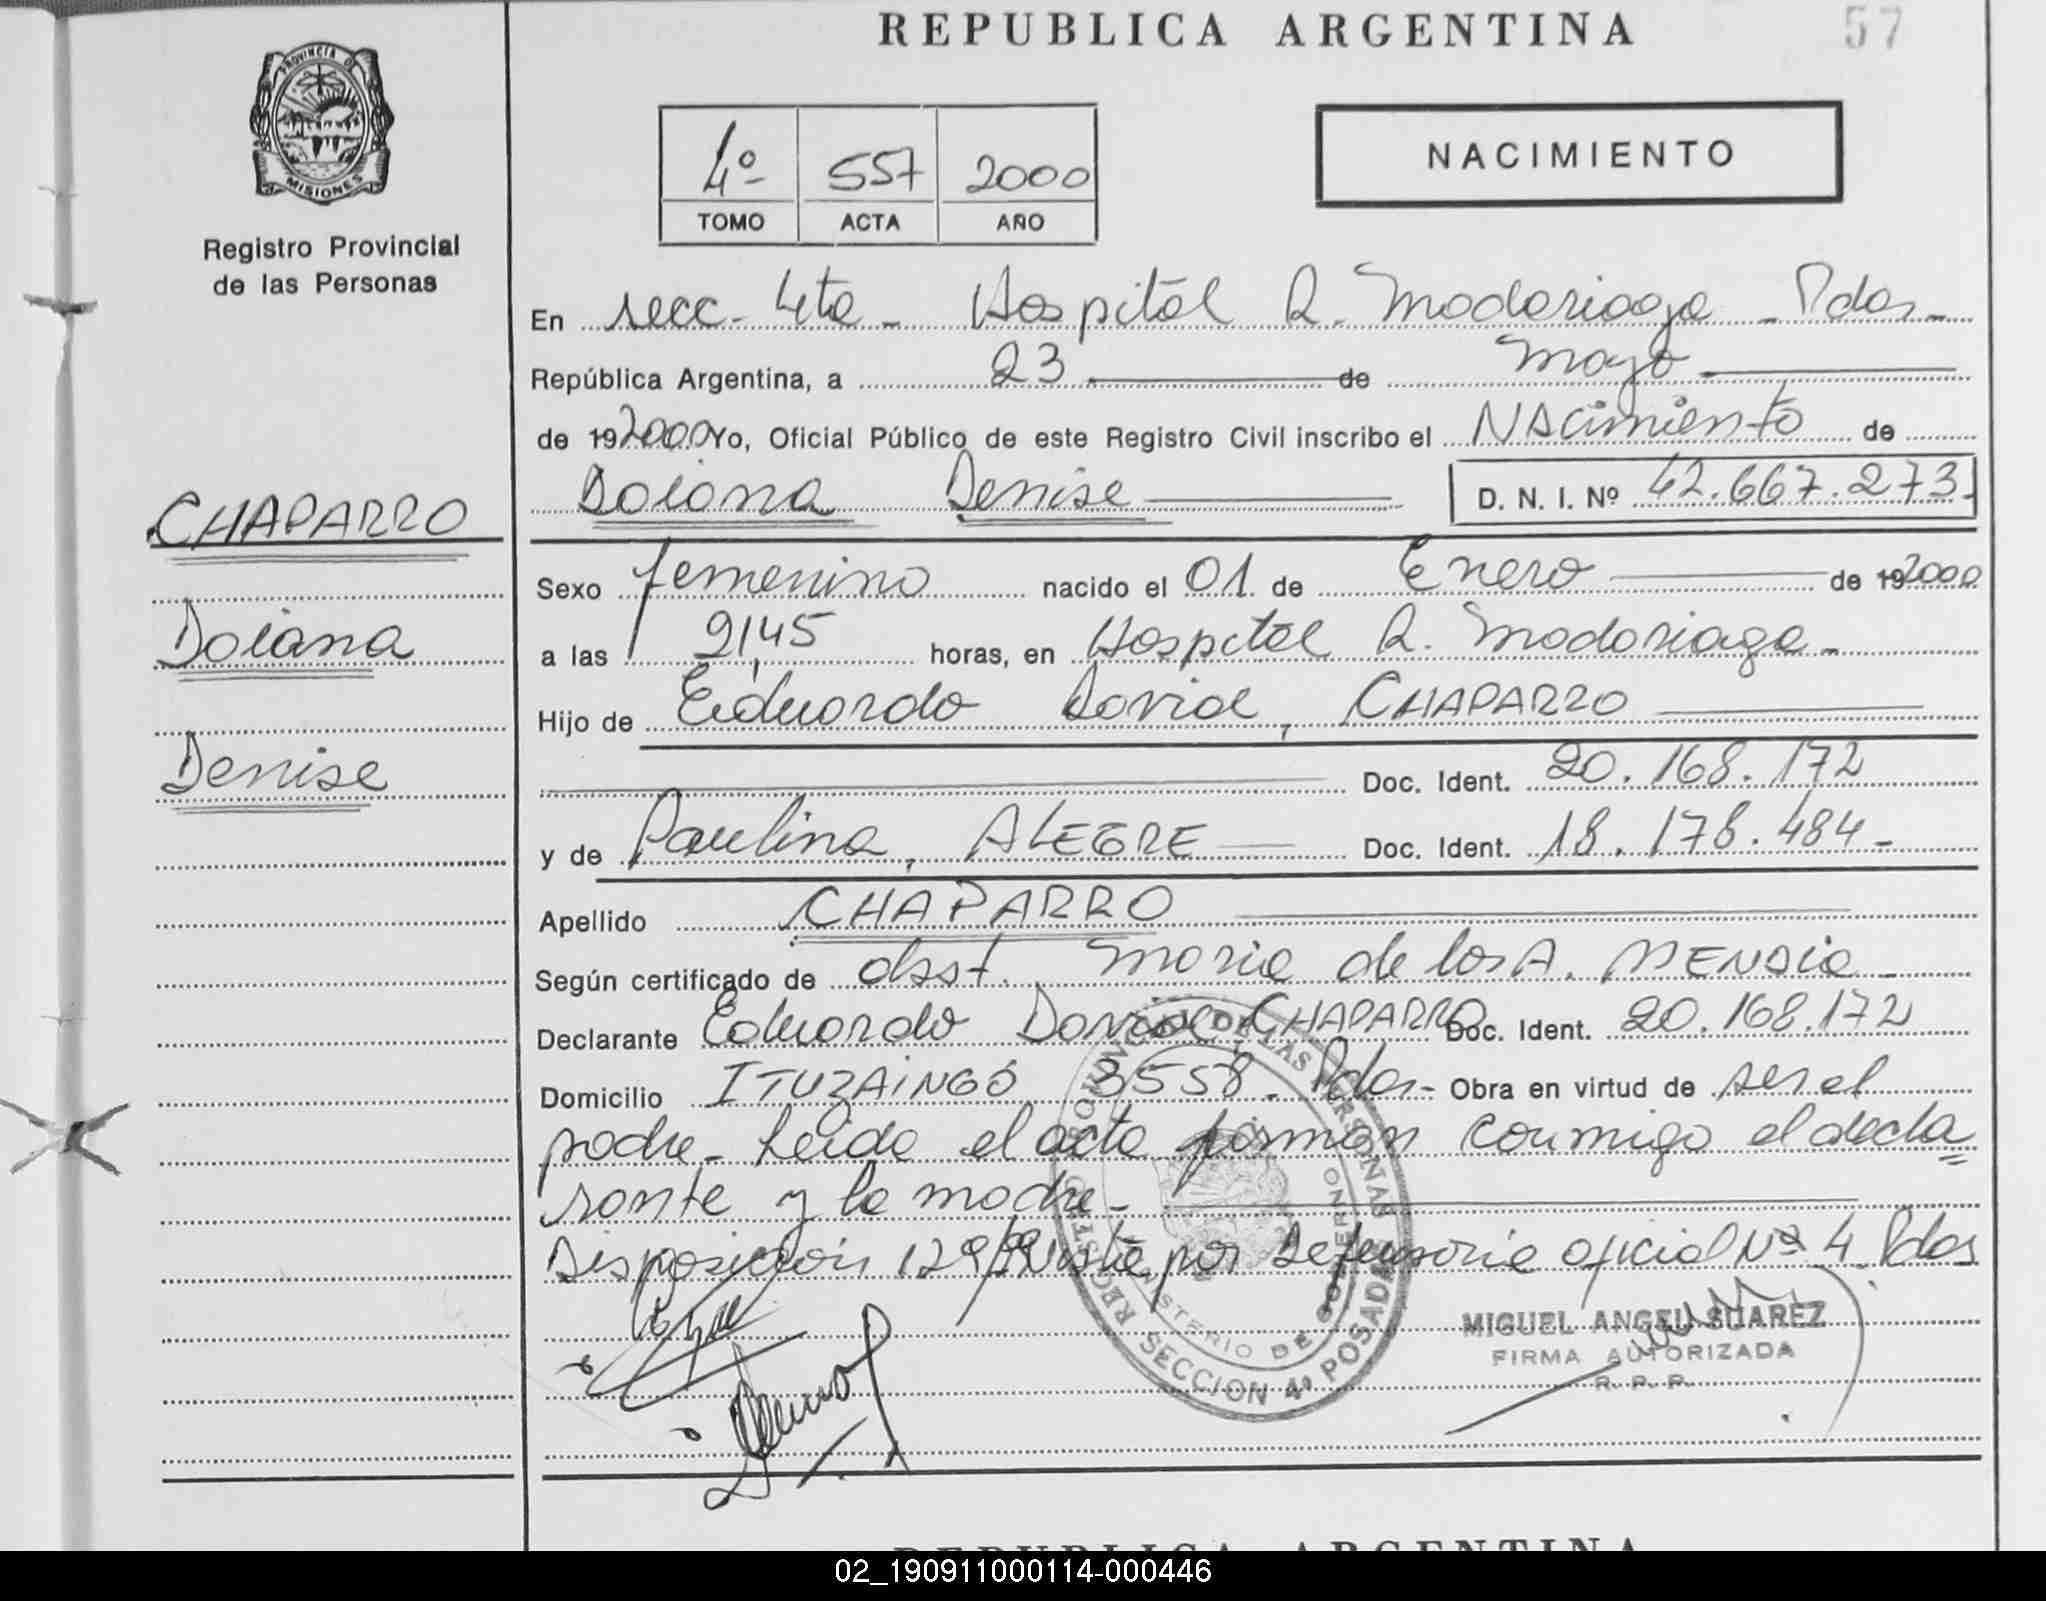 REPUBLICA ARGENTINA
57
PROVINCIA DE
MISIONES
Registro Provincial
de las Personas
4º 557 2000
TOMO ACTA AÑO
NACIMIENTO
En secc. 4ta - Hospital R. Madariaga - Pdas -
República Argentina, a 23 de mayo
de 192000 Yo, Oficial Público de este Registro Civil inscribo el NACimiento de
Daiana Denise D. N. I. Nº 42.667.273.
CHAPARRO
Daiana
Denise
Sexo femenino nacido el 01 de Enero de 192000
a las 9,45 horas, en Hospital R. Madariaga -
Hijo de Eduardo Daniel, CHAPARRO
Doc. Ident. 20.168.172
y de Paulina, ALEGRE Doc. Ident. 18.178.484 -
Apellido CHAPARRO
Según certificado de obst. Maria de los A. MENDie -
Declarante Eduardo Daniel CHAPARRO Doc. Ident. 20.168.172
Domicilio ITUZAiNGÓ 3558 - Pdas - Obra en virtud de ser el
padre - Leida el acta firman conmigo el decla
rante y la madre -
Disposición por Defensoria oficial Nº 4 Pdas
REGISTRO PROVINCIAL DE LAS PERSONAS
MINISTERIO DE GOBIERNO
SECCION 4ª POSADAS
MIGUEL ANGEL SUAREZ
FIRMA AUTORIZADA
R. P. P.
REPUBLICA ARGENTINA
02_190911000114-000446